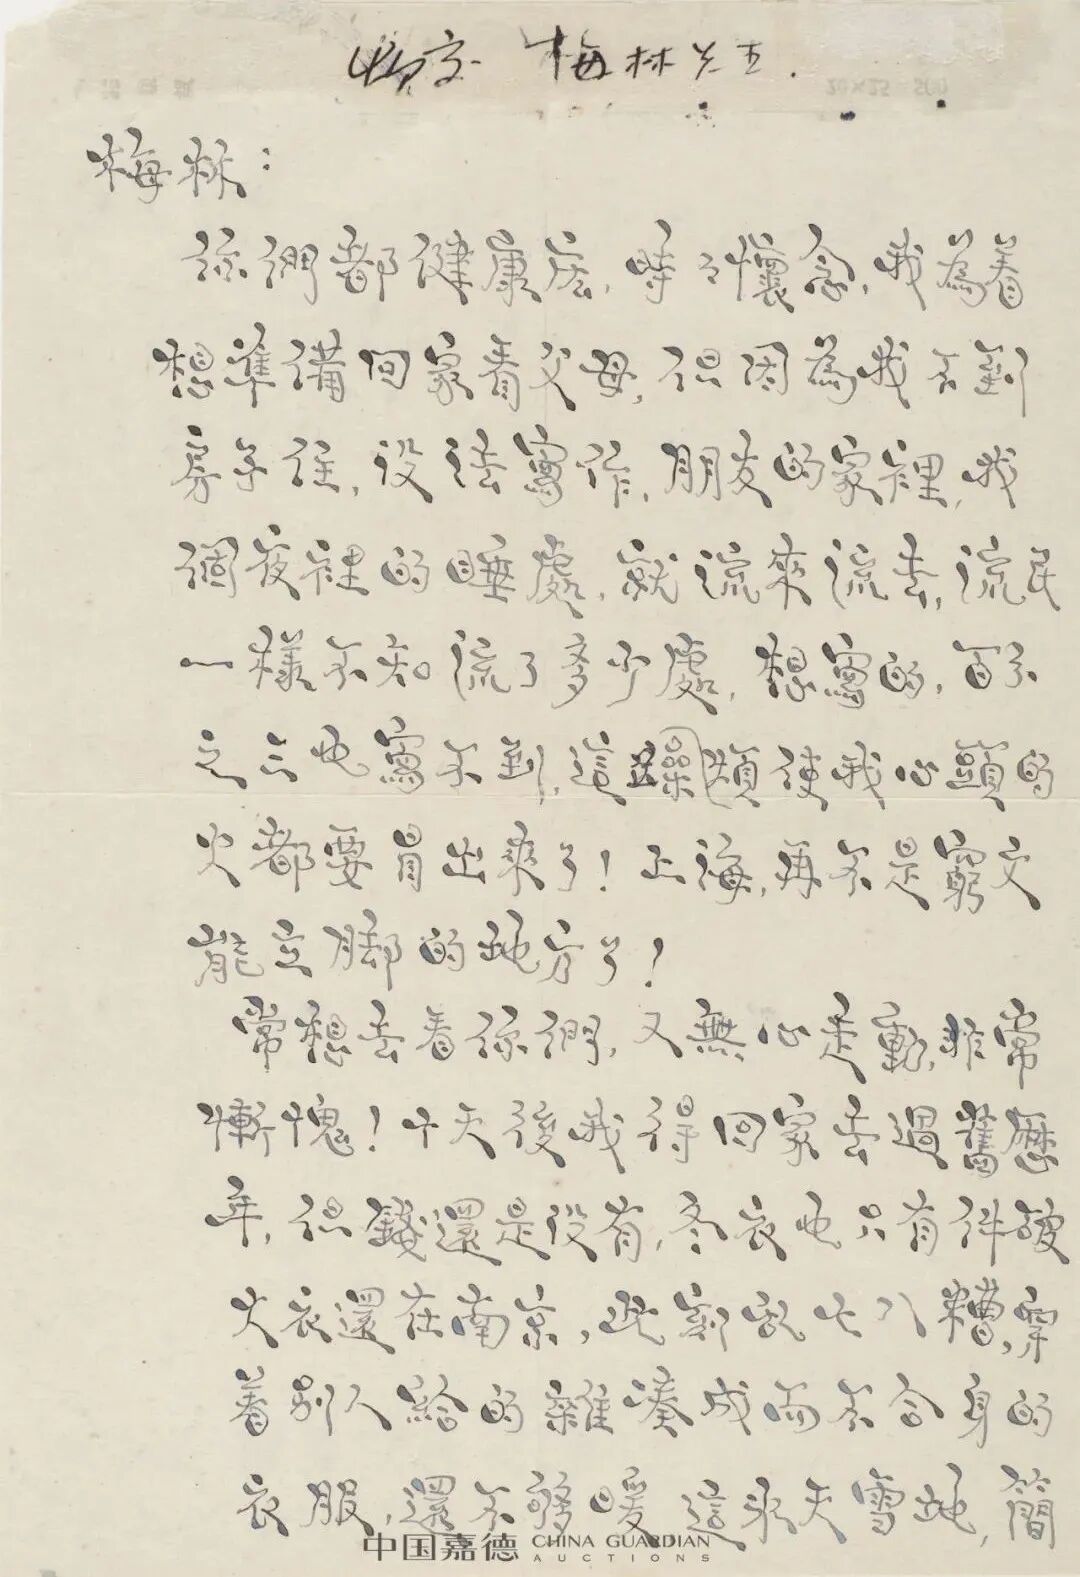 梅林先生.
梅林：
你們都健康麼，時時懷念，我為着
想準備回家看父母，但因為找不到
房子住，沒法寫作，朋友的家裡，我
個夜裡的睡處，就流來流去，流民
一樣不知流了多少處，想寫的，百分
之三也寫不到，這躁煩使我心頭的
火都要冒出來了！上海，再不是窮文
能立腳的地方了！
常想去看你們，又無心走動，非常
慚愧！十天後我得回家去過舊歷
年，但錢還是沒有，冬衣也只有件破
大衣還在南京，此刻亂七八糟，穿
着別人給的雜湊成而不合身的
衣服，還不夠暖這氷天雪地，簡
中国嘉德 CHINA GUARDIAN
AUCTIONS